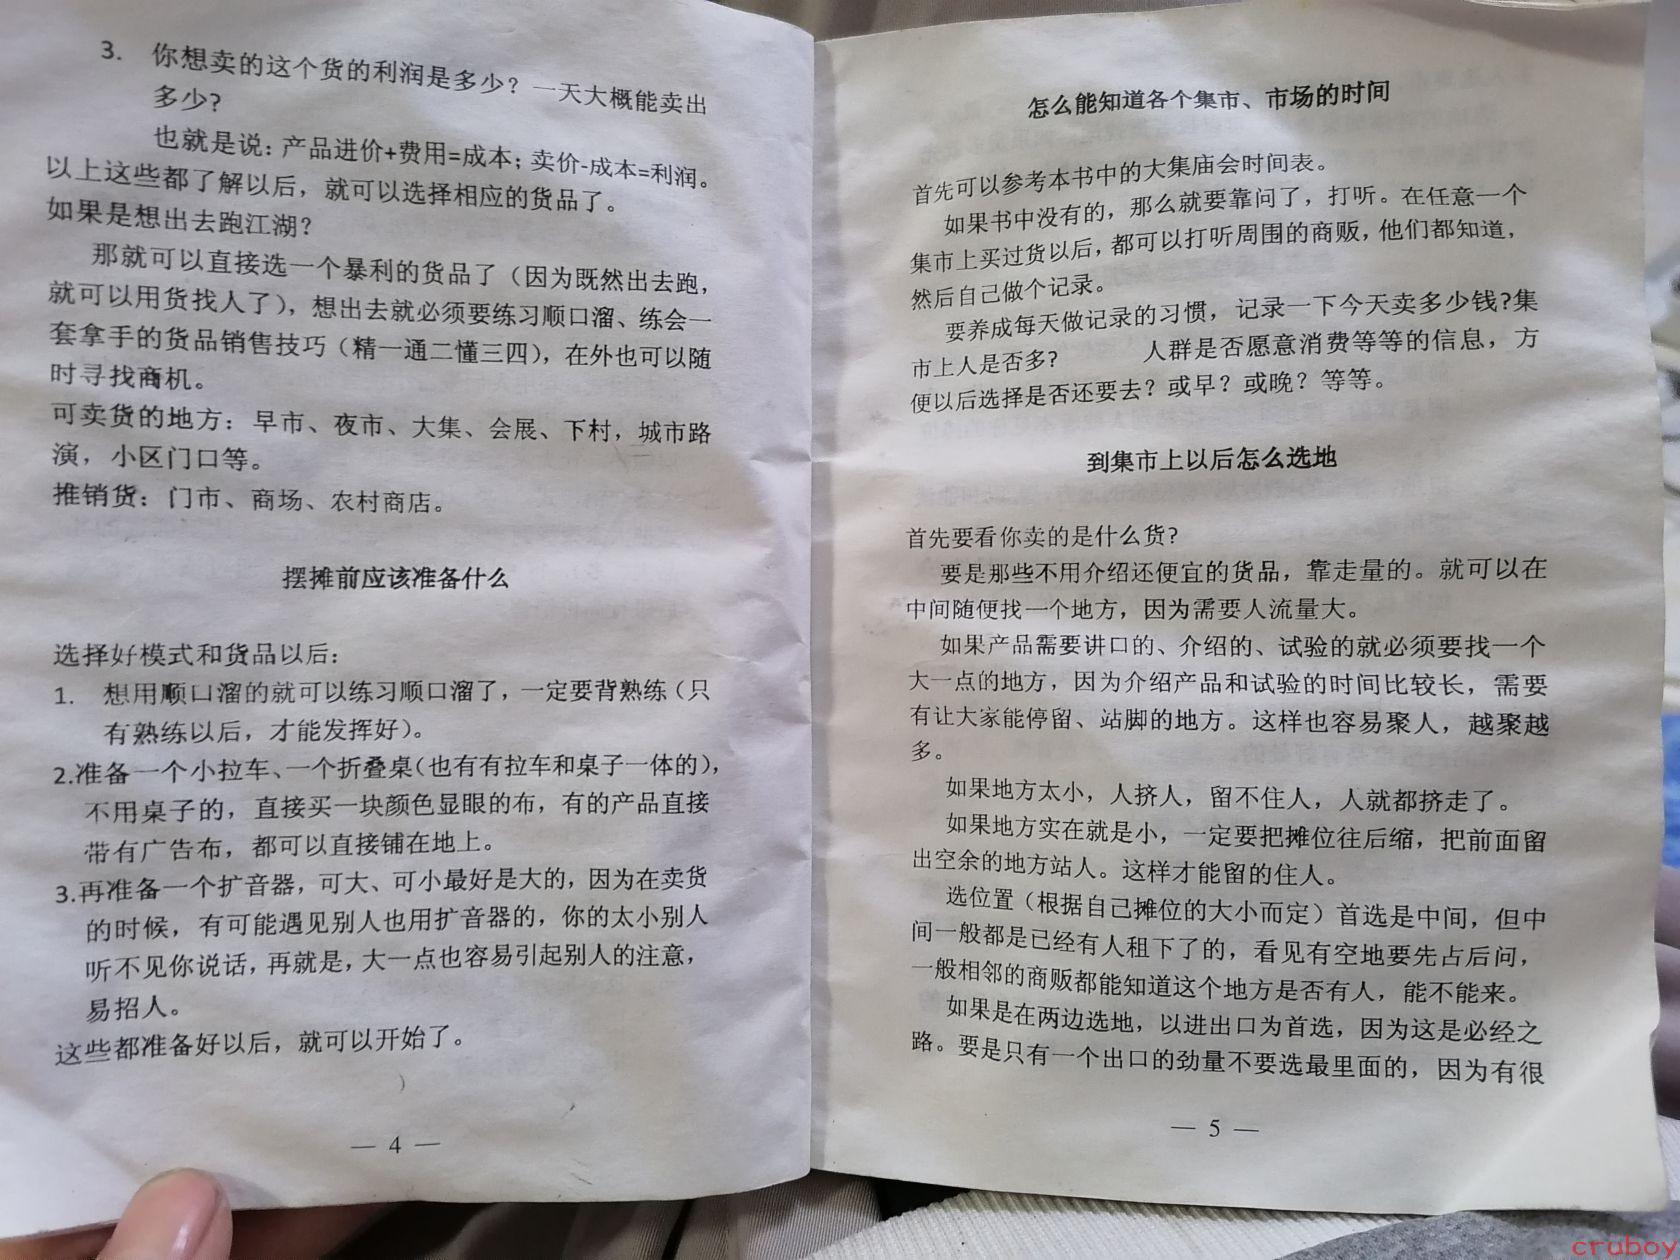 3. 你想卖的这个货的利润是多少？一天大概能卖出
多少？
也就是说：产品进价+费用=成本；卖价-成本=利润。
以上这些都了解以后，就可以选择相应的货品了。
如果是想出去跑江湖？
那就可以直接选一个暴利的货品了（因为既然出去跑，
就可以用货找人了），想出去就必须要练习顺口溜、练会一
套拿手的货品销售技巧（精一通二懂三四），在外也可以随
时寻找商机。
可卖货的地方：早市、夜市、大集、会展、下村，城市路
演，小区门口等。
推销货：门市、商场、农村商店。
摆摊前应该准备什么
选择好模式和货品以后：
1. 想用顺口溜的就可以练习顺口溜了，一定要背熟练（只
有熟练以后，才能发挥好）。
2.准备一个小拉车、一个折叠桌（也有有拉车和桌子一体的），
不用桌子的，直接买一块颜色显眼的布，有的产品直接
带有广告布，都可以直接铺在地上。
3.再准备一个扩音器，可大、可小最好是大的，因为在卖货
的时候，有可能遇见别人也用扩音器的，你的太小别人
听不见你说话，再就是，大一点也容易引起别人的注意，
易招人。
这些都准备好以后，就可以开始了。
— 4 —
怎么能知道各个集市、市场的时间
首先可以参考本书中的大集庙会时间表。
如果书中没有的，那么就要靠问了，打听。在任意一个
集市上买过货以后，都可以打听周围的商贩，他们都知道，
然后自己做个记录。
要养成每天做记录的习惯，记录一下今天卖多少钱?集
市上人是否多? 人群是否愿意消费等等的信息，方
便以后选择是否还要去？或早？或晚？等等。
到集市上以后怎么选地
首先要看你卖的是什么货?
要是那些不用介绍还便宜的货品，靠走量的。就可以在
中间随便找一个地方，因为需要人流量大。
如果产品需要讲口的、介绍的、试验的就必须要找一个
大一点的地方，因为介绍产品和试验的时间比较长，需要
有让大家能停留、站脚的地方。这样也容易聚人，越聚越
多。
如果地方太小，人挤人，留不住人，人就都挤走了。
如果地方实在就是小，一定要把摊位往后缩，把前面留
出空余的地方站人。这样才能留的住人。
选位置（根据自己摊位的大小而定）首选是中间，但中
间一般都是已经有人租下了的，看见有空地要先占后问，
一般相邻的商贩都能知道这个地方是否有人，能不能来。
如果是在两边选地，以进出口为首选，因为这是必经之
路。要是只有一个出口的劲量不要选最里面的，因为有很
— 5 —
cruboy